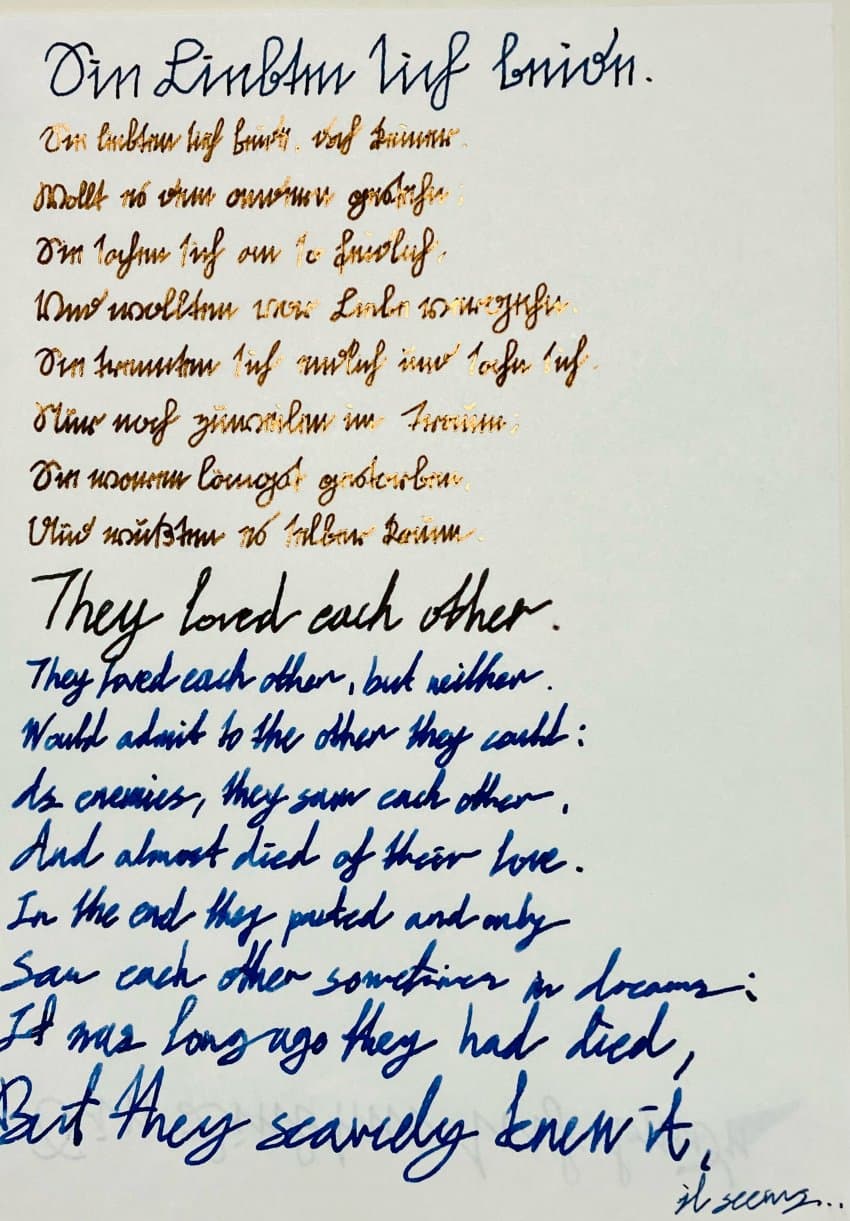 Sie Liebten sich beide.
Sie liebten sich beide, doch keiner.
Wollt es dem andern gestehn;
Sie sahen sich an so feindlich,
Und wollten vor Liebe vergehn.
Sie trennten sich endlich und sahn sich.
Nur noch zuweilen im Traum;
Sie waren längst gestorben,
Und wußten es selber kaum.
They loved each other.
They loved each other, but neither.
Would admit to the other they could:
As enemies, they saw each other,
And almost died of their love.
In the end they parted and only
Saw each other sometimes in dreams:
It was long ago they had died,
But they scarcely knew it,
it seems...